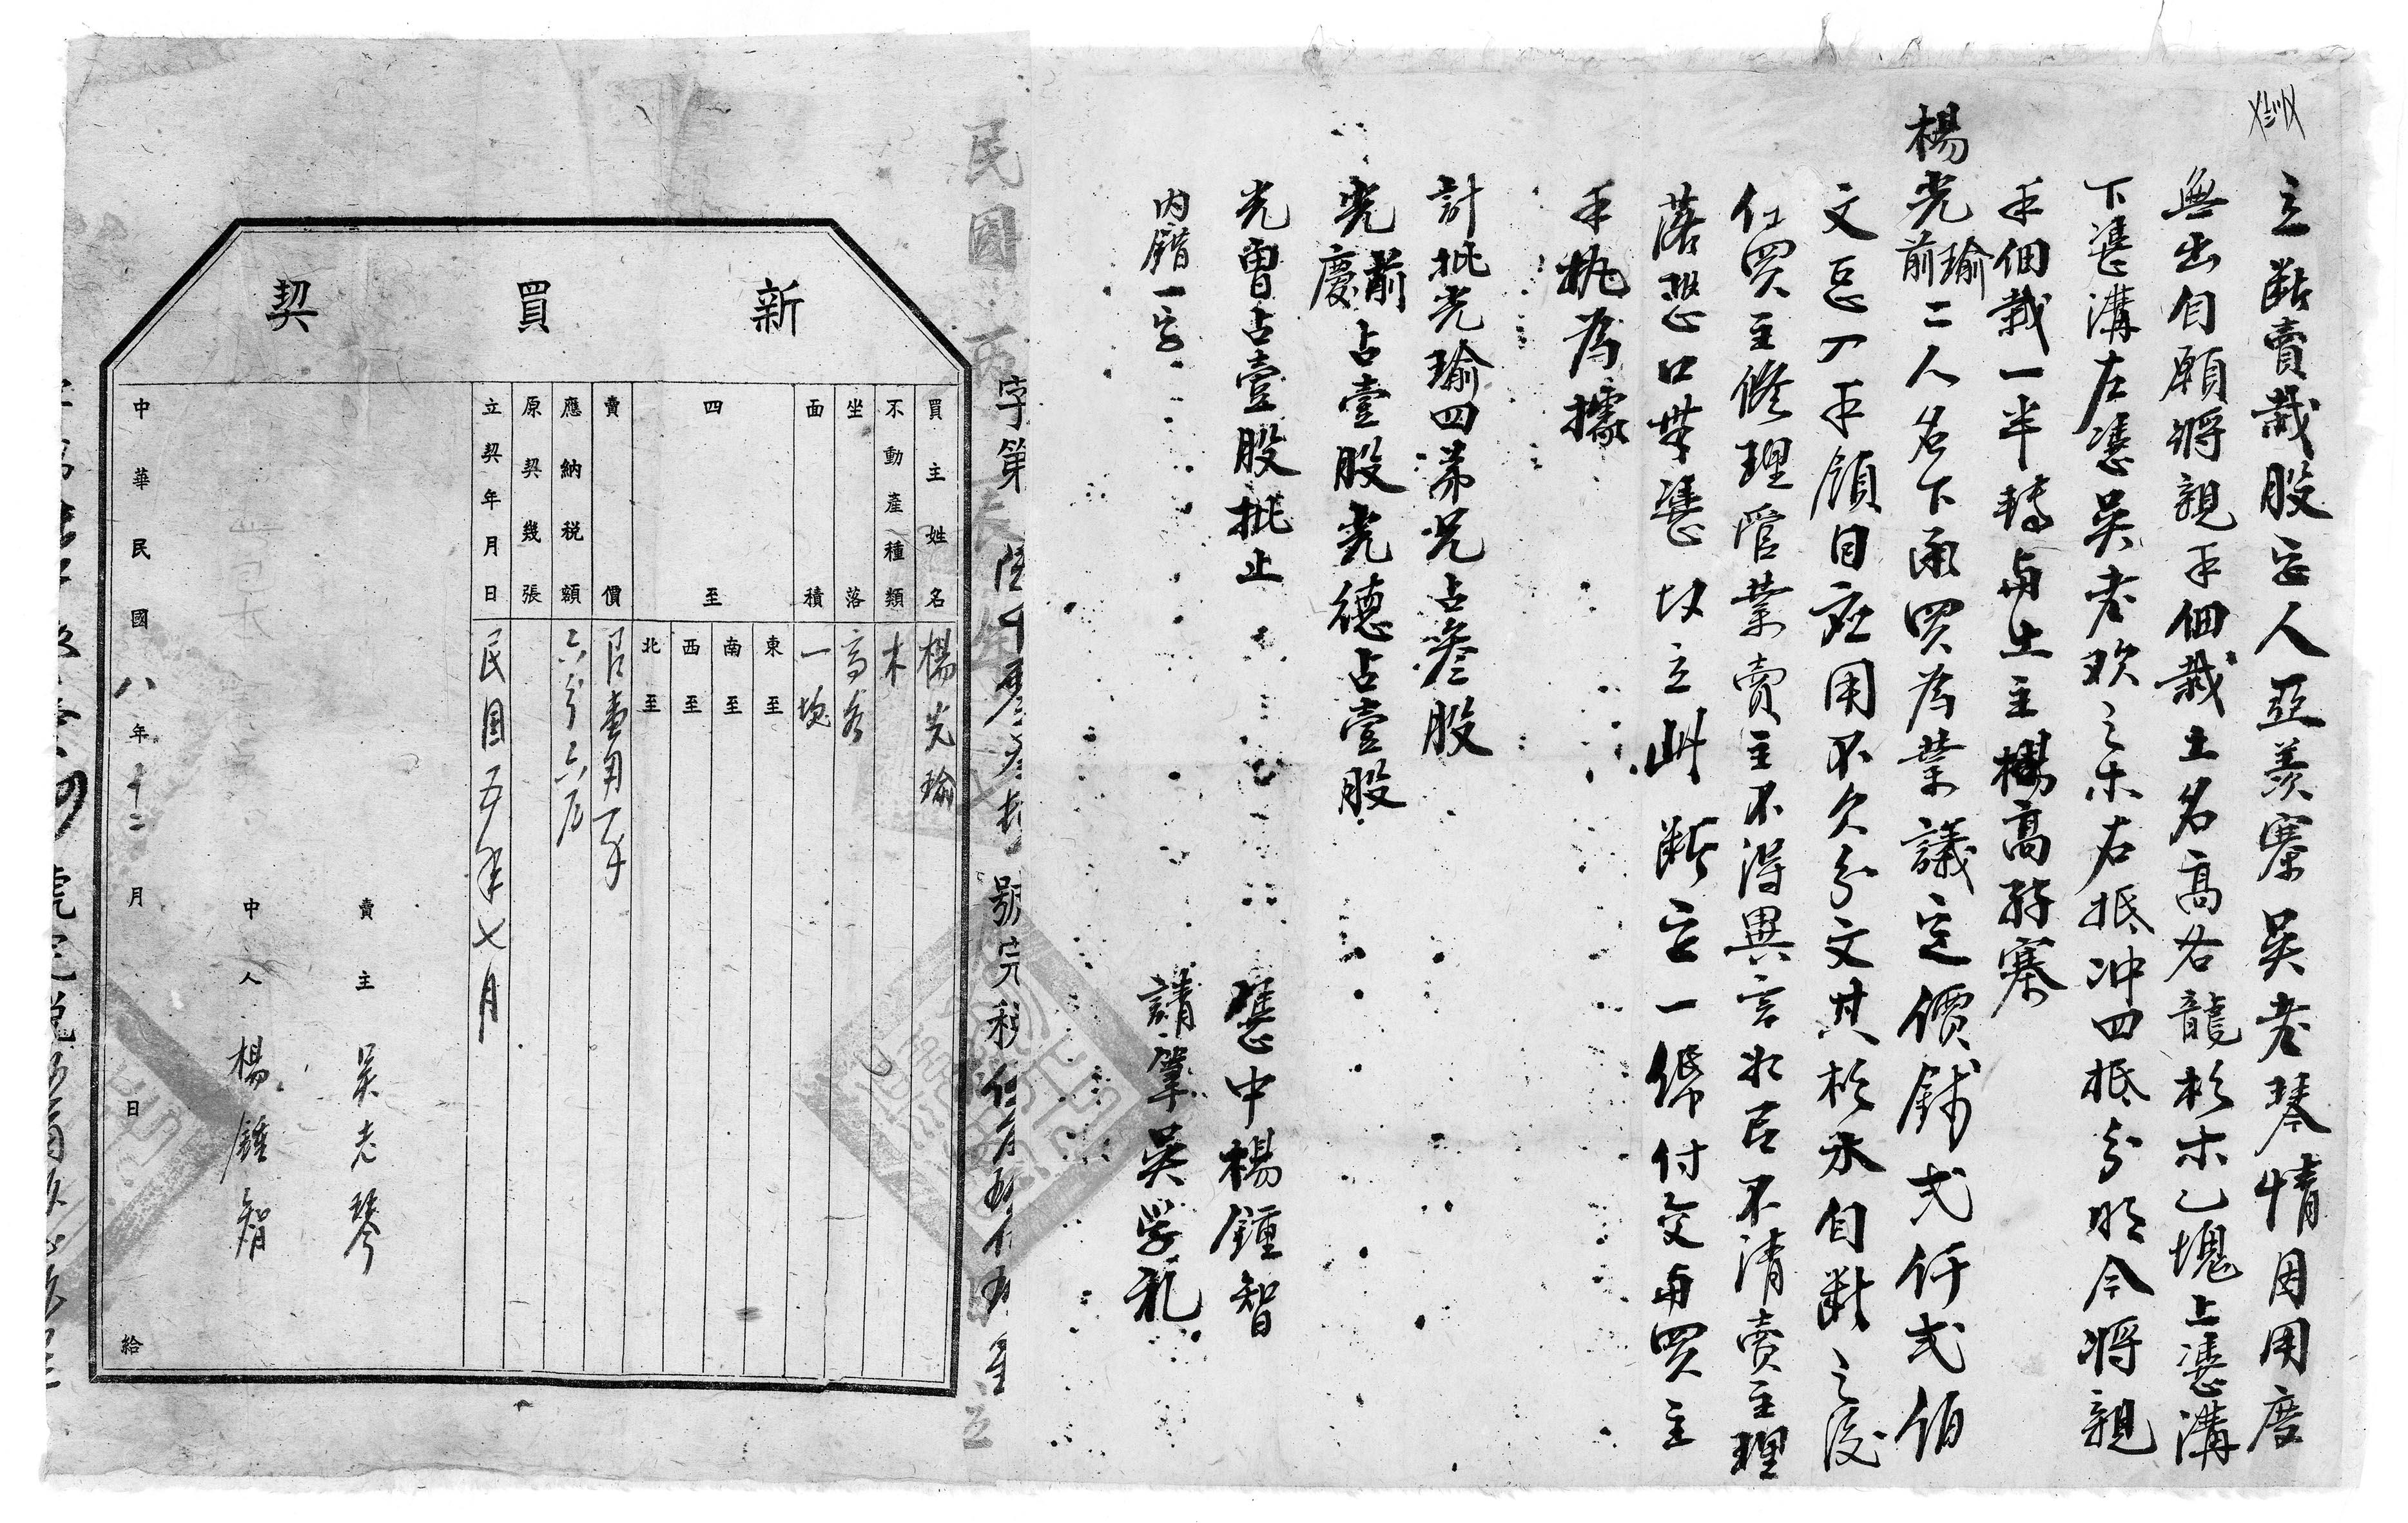 立斷賣栽股字人亞羨寨吳老琴情因用度
無出自願將親手佃栽土名高谷龍杉木乙塊上憑溝
下憑溝左憑吳老歡之木右抵冲四抵分明今將親
手佃栽一半轉與土主楊高孖寨
楊光瑜前二人名下承買為業議定價錢弍仟弍佰
文忘刀手領自應用不欠分文其杉木自斷之後
仕買主修理管業賣主不得異言如后不清賣主理
落恐口無憑故立此斷字一帋付交與買主
手執為據
計批光瑜四弟兄占叁股
光前慶占壹股光德占壹股
光曽占壹股批止
憑中楊鍾智
内錯一字
請筆吳学礼
民國丙辰年
字第 號完稅
新買契
買主姓名 楊光瑜
不動產種類 木
坐落 高谷
面積 一塊
四至 東至 南至 西至 北至
賣價
應納稅額 六分六厘
原契幾張
立契年月日 民国五年七月
賣主 吴老琴
中人 楊鍾智
中華民國八年十二月 日 給